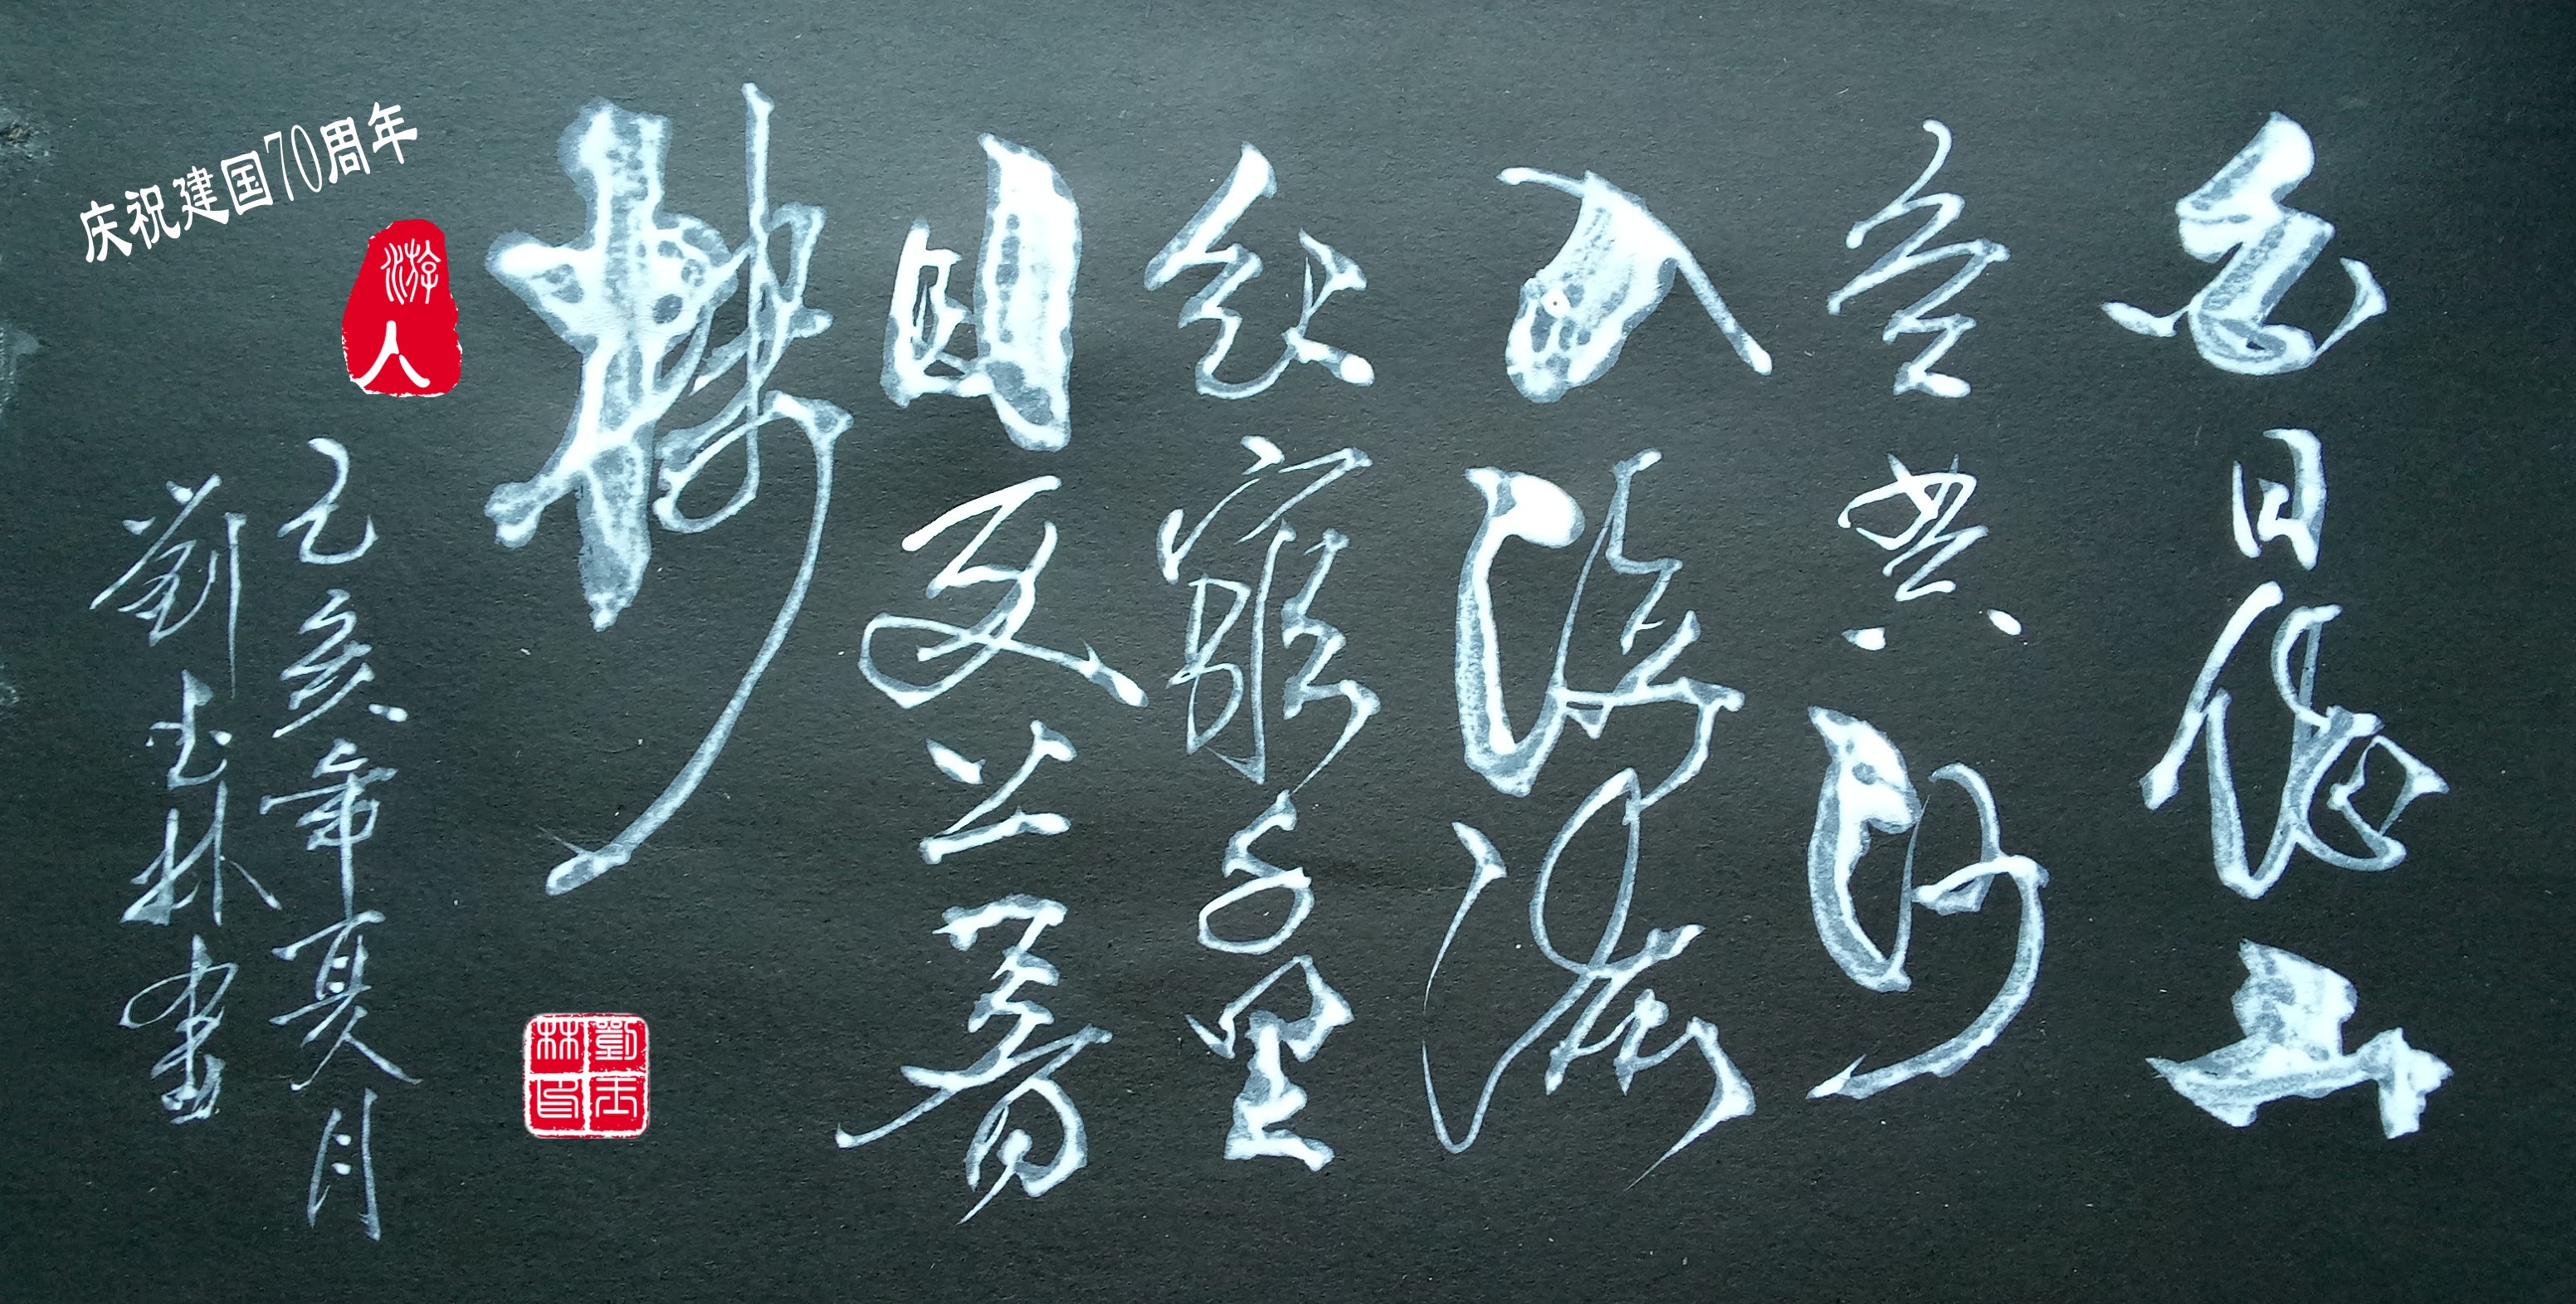 白日依山
盡黄河
入海流
欲窮千里
目更上一層
樓
己亥年夏月
劉玉林書
庆祝建国70周年
游人
劉玉林印